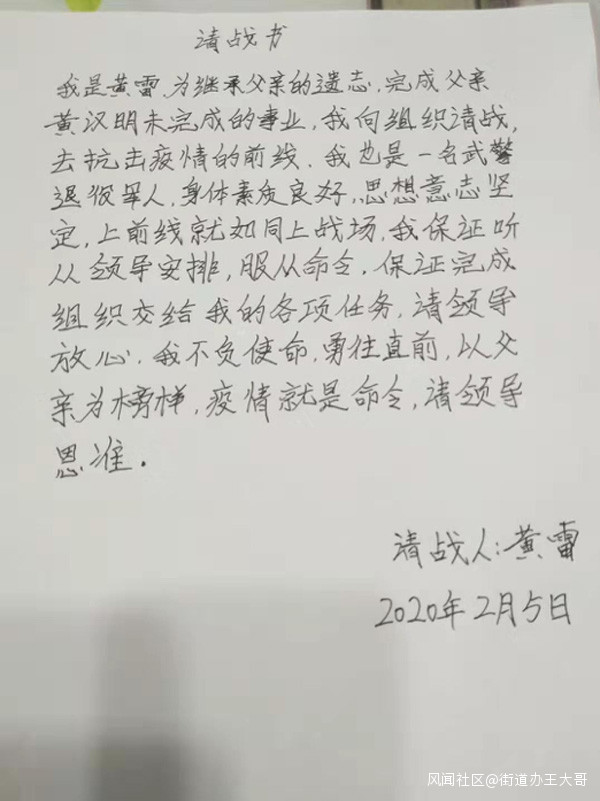 请战书
我是黄雷,为继承父亲的遗志,完成父亲
黄汉明未完成的事业,我向组织请战,
去抗击疫情的前线.我也是一名武警
退役军人,身体素质良好,思想意志坚
定,上前线就如同上战场,我保证听
从领导安排,服从命令.保证完成
组织交给我的各项任务,请领导
放心.我不负使命,勇往直前,以父
亲为榜样,疫情就是命令,请领导
恩准.
请战人:黄雷
2020年2月5日
风闻社区@街道办王大哥